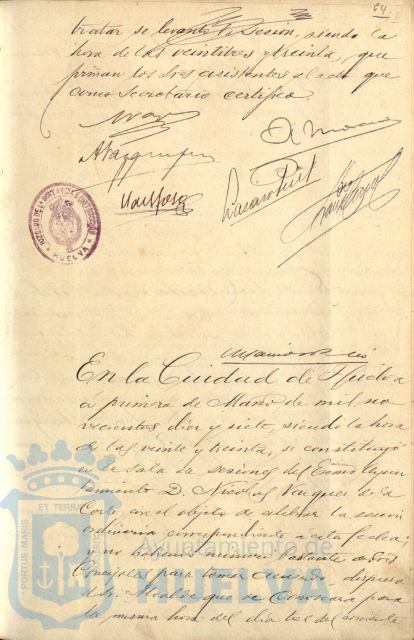 64
tratar se levantó la Sesión, siendo la
hora de las veintitres y treinta, que
firman los Sres asistentes al acto que
como Secretario certifico.
En la Cuidad de Huelva
a primero de Marzo de mil no
vecientos diez y siete, siendo la hora
de las veinte y treinta, se constituyó
en la Sala de sesiones del Excmo Ayun
tamiento D. Nicolas Vazquez de la
Corte, con el objeto de celebrar la sesión
ordinaria correspondiente a esta fecha;
y no habiendo
Concejales para tomar acuerdo, dispuso
el Sr. Alcalde que se convocara para
la misma hora del día tres del corriente
HUELVA
PORTUS MARIS ET TERRAE
Ayuntamiento de
HUELVA